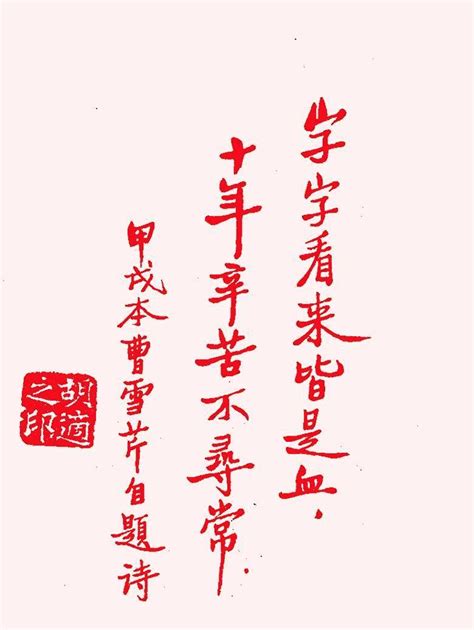 字字看来皆是血，
十年辛苦不尋常．
甲戌本曹雪芹自題诗
胡適之印